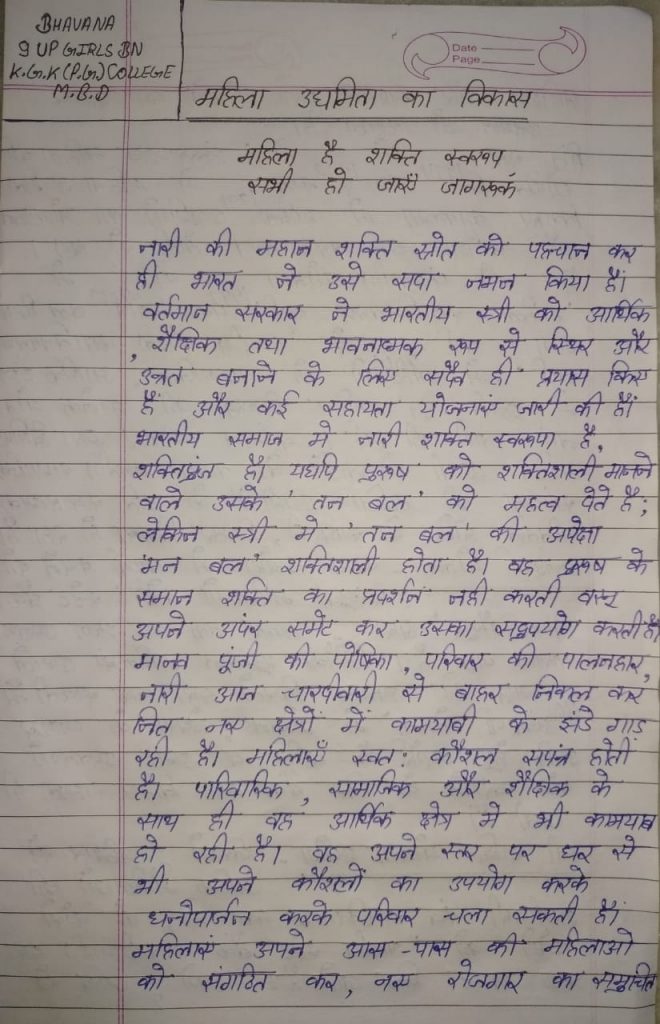 BHAVANA
9 UP GIRLS BN
K.G.K (P.G.) COLLEGE
M.B.D
Date
Page
महिला उधमिता का विकास
महिला है शक्ति स्वरूप
सभी हो जाएँ जागरूक
नारी की महान शक्ति स्रोत को पहचान कर
ही भारत ने उसे सदा नमन किया है।
वर्तमान सरकार ने भारतीय स्त्री को आर्थिक
, शैक्षिक तथा भावनात्मक रूप से स्थिर और
उन्नत बनाने के लिए सदैव ही प्रयास किए
हैं और कई सहायता योजनाएं जारी की हैं।
भारतीय समाज मे नारी शक्ति स्वरूपा है,
शक्तिपुंज है। यद्यपि पुरूष को शक्तिशाली मानने
वाले उसके 'तन बल' को महत्व देते है;
लेकिन स्त्री मे 'तन बल' की अपेक्षा
'मन बल' शक्तिशाली होता है। वह पुरूष के
समान शक्ति का प्रदर्शन नही करती वरन्
अपने अंदर समेट कर उसका सदुपयोग करती है।
मानव पूंजी की पोषिका, परिवार की पालनहार,
नारी आज चारदीवारी से बाहर निकल कर
नित नए क्षेत्रों में कामयाबी के झंडे गाड़
रही है। महिलाएँ स्वत: कौशल संपन्न होती
है। पारिवारिक, सामाजिक और शैक्षिक के
साथ ही वह आर्थिक क्षेत्र मे भी कामयाब
हो रही है। वह अपने स्तर पर घर से
भी अपने कौशलों का उपयोग करके
धनोपार्जन करके परिवार चला सकती है।
महिलाएं अपने आस-पास की महिलाओ
को संगठित कर, नए रोजगार का समुचित